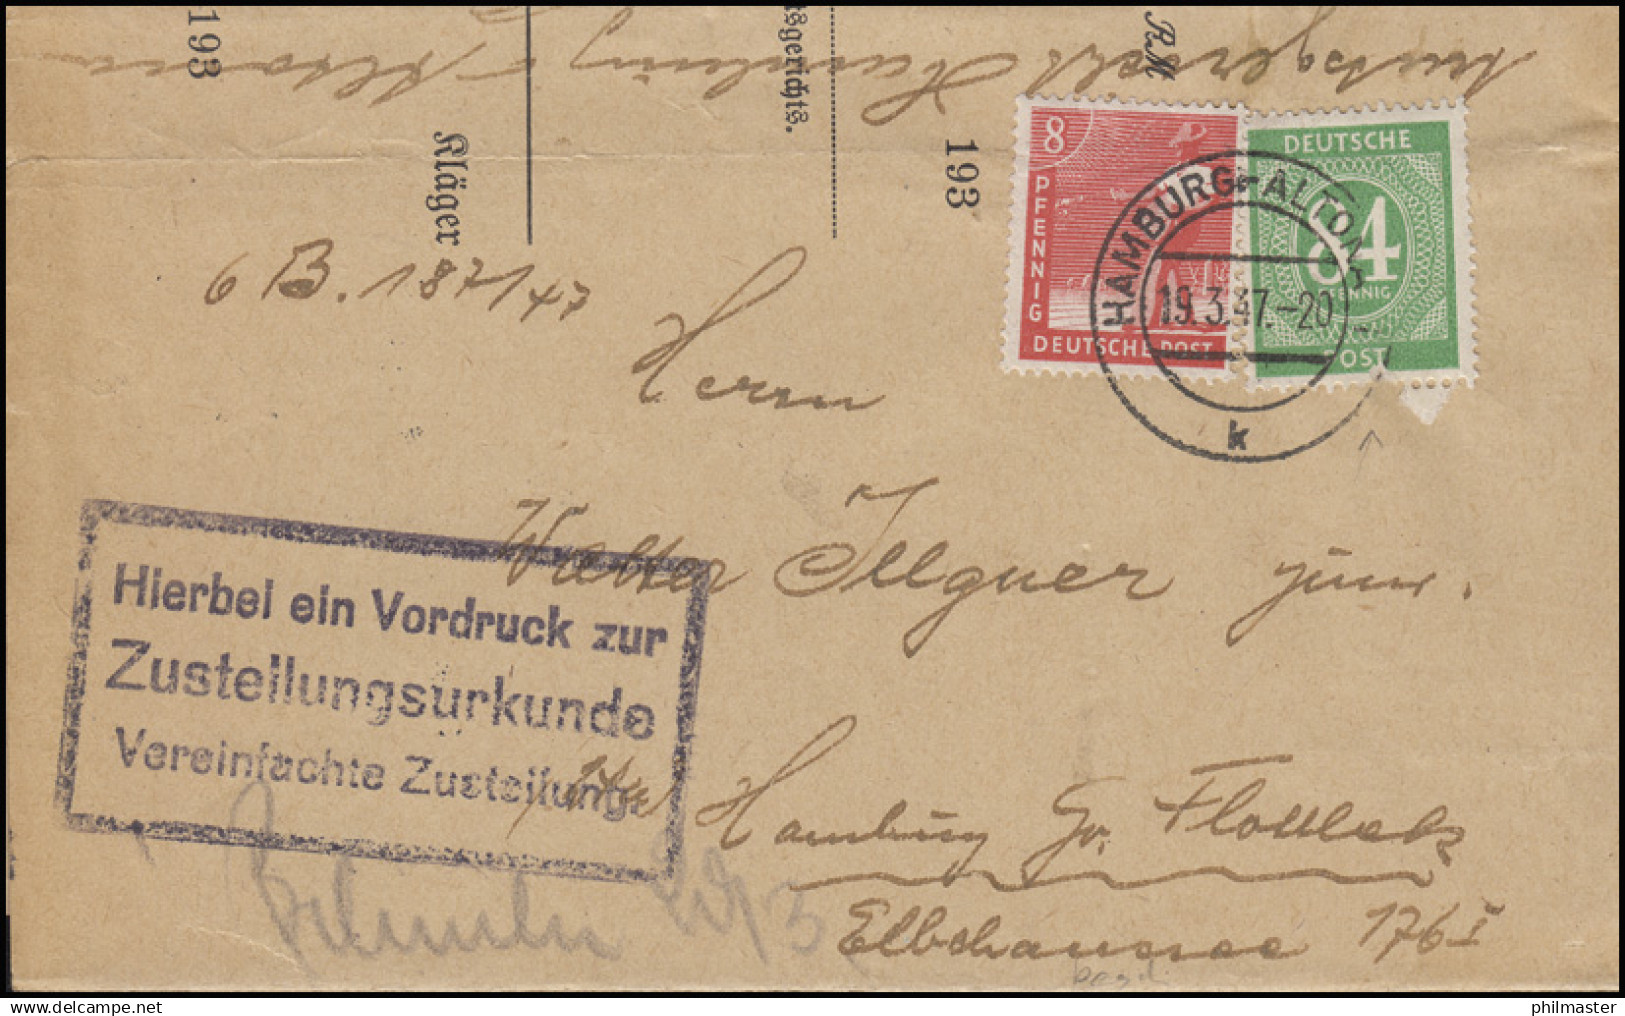 193
Kläger
tsgerichts.
193
RM
Amtsgericht Hamburg-Altona
6 B. 1871/47
8
PFENNIG
DEUTSCHE POST
DEUTSCHE
84
PFENNIG
POST
HAMBURG-ALTONA
19.3.47.-20
k
Herrn
Walter Illgner jun.
Hierbei ein Vordruck zur
Zustellungsurkunde
Vereinfachte Zustellung.
Hamburg Gr. Flottbek
Elbchaussee 176 I
philmaster